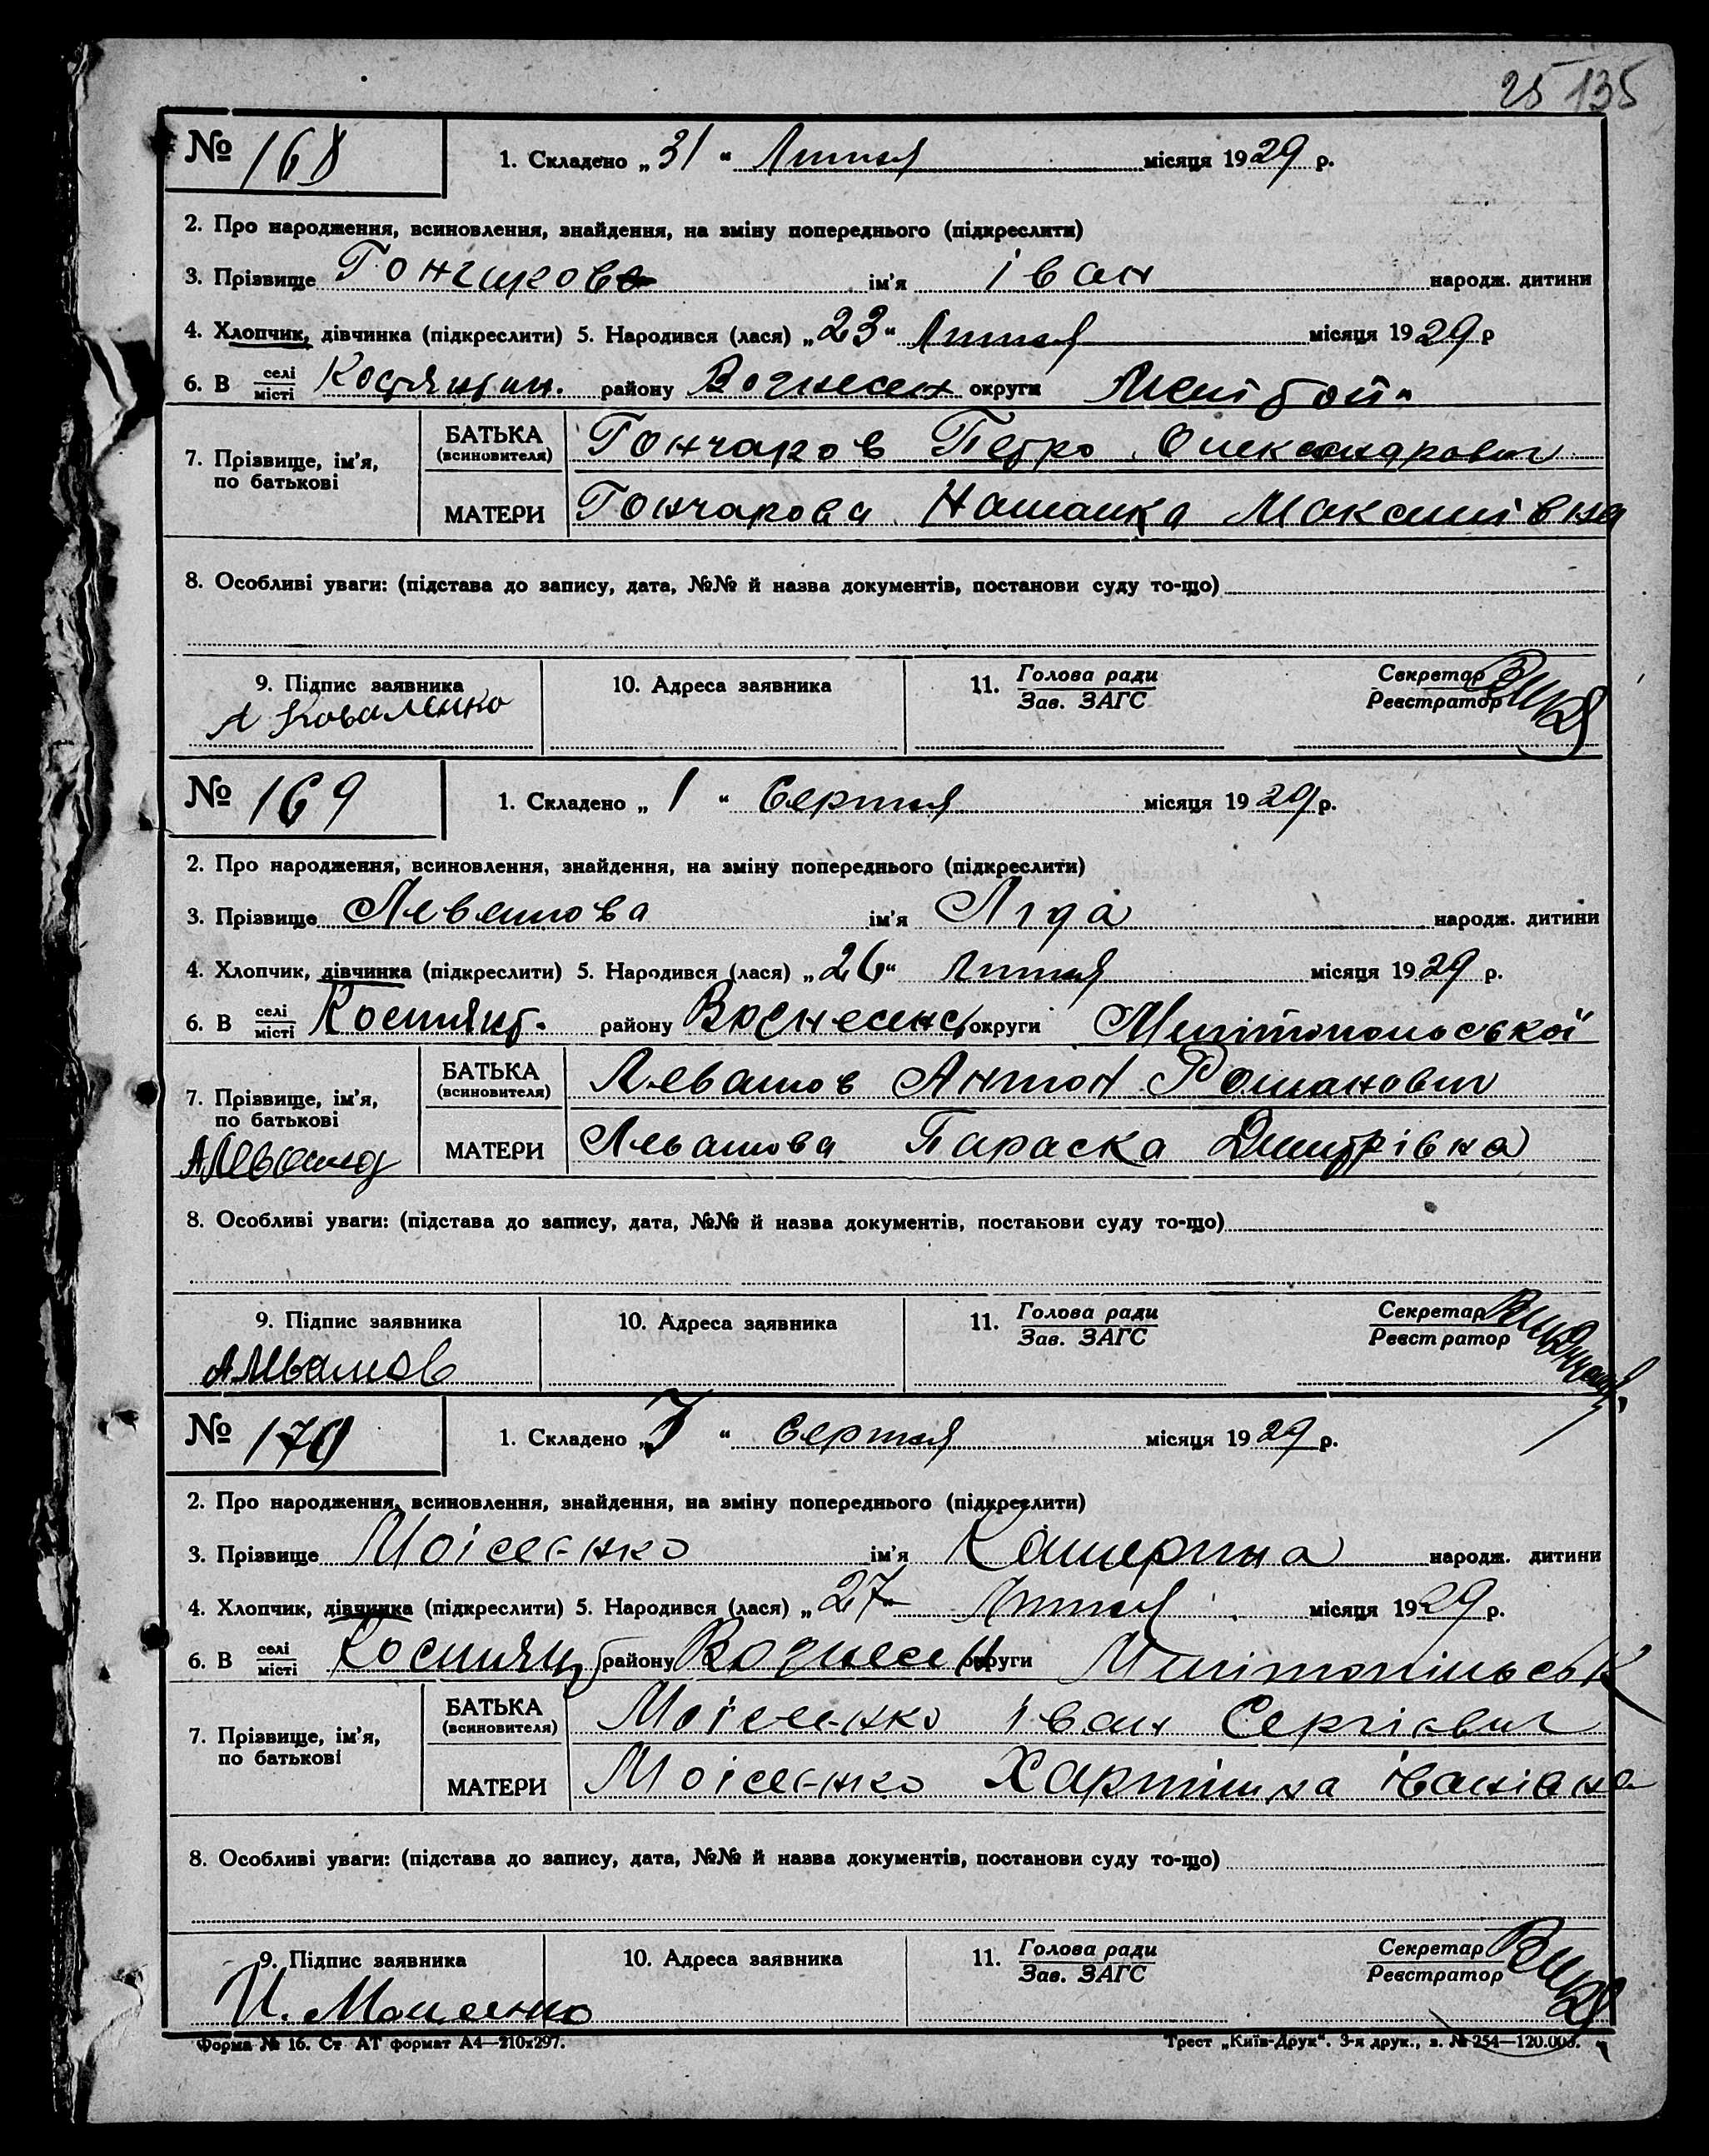 25 135
№ 168
1. Складено „31“ Липня місяця 1929 р.
2. Про народження, всиновлення, знайдення, на зміну попереднього (підкреслити)
3. Прізвище Гончаров ім'я Іван народж. дитини
4. Хлопчик, дівчинка (підкреслити) 5. Народився (лася) „23“ Липня місяця 1929 р
6. В селі місті Костянтин. району Вознесен округи
7. Прізвище, ім'я, по батькові
БАТЬКА (всиновителя) Гончаров Петро Олександрович
МАТЕРИ Гончарова Наталка Максимівна
8. Особливі уваги: (підстава до запису, дата, №№ й назва документів, постанови суду то-що)
9. Підпис заявника 10. Адреса заявника 11. Голова ради Зав. ЗАГС Секретар Реєстратор
А Коваленко
№ 169
1. Складено „1“ Серпня місяця 1929 р.
2. Про народження, всиновлення, знайдення, на зміну попереднього (підкреслити)
3. Прізвище Левашова ім'я Ліда народж. дитини
4. Хлопчик, дівчинка (підкреслити) 5. Народився (лася) „26“ липня місяця 1929 р.
6. В селі місті Костянт. району Вознесенс округи Мелітопольської
7. Прізвище, ім'я, по батькові
БАТЬКА (всиновителя) Левашов Антон Романович
МАТЕРИ Левашова Параска Дмитрівна
8. Особливі уваги: (підстава до запису, дата, №№ й назва документів, постанови суду то-що)
9. Підпис заявника 10. Адреса заявника 11. Голова ради Зав. ЗАГС Секретар Реєстратор
А Левашов
№ 170
1. Складено „7“ Серпня місяця 1929 р.
2. Про народження, всиновлення, знайдення, на зміну попереднього (підкреслити)
3. Прізвище Моісеєнко ім'я Катерина народж. дитини
4. Хлопчик, дівчинка (підкреслити) 5. Народився (лася) „27“ Липня місяця 1929 р.
6. В селі місті Костянт району Вознесен округи Мелітопільськ
7. Прізвище, ім'я, по батькові
БАТЬКА (всиновителя) Моісеєнко Іван Сергієвич
МАТЕРИ Моісеєнко Харитина Іванівна
8. Особливі уваги: (підстава до запису, дата, №№ й назва документів, постанови суду то-що)
9. Підпис заявника 10. Адреса заявника 11. Голова ради Зав. ЗАГС Секретар Реєстратор
И. Моисеенко
Форма № 16. Ст АТ формат А4—210х297. Трест „Київ-Друк“. 3-я друк., з. № 254—120.000.